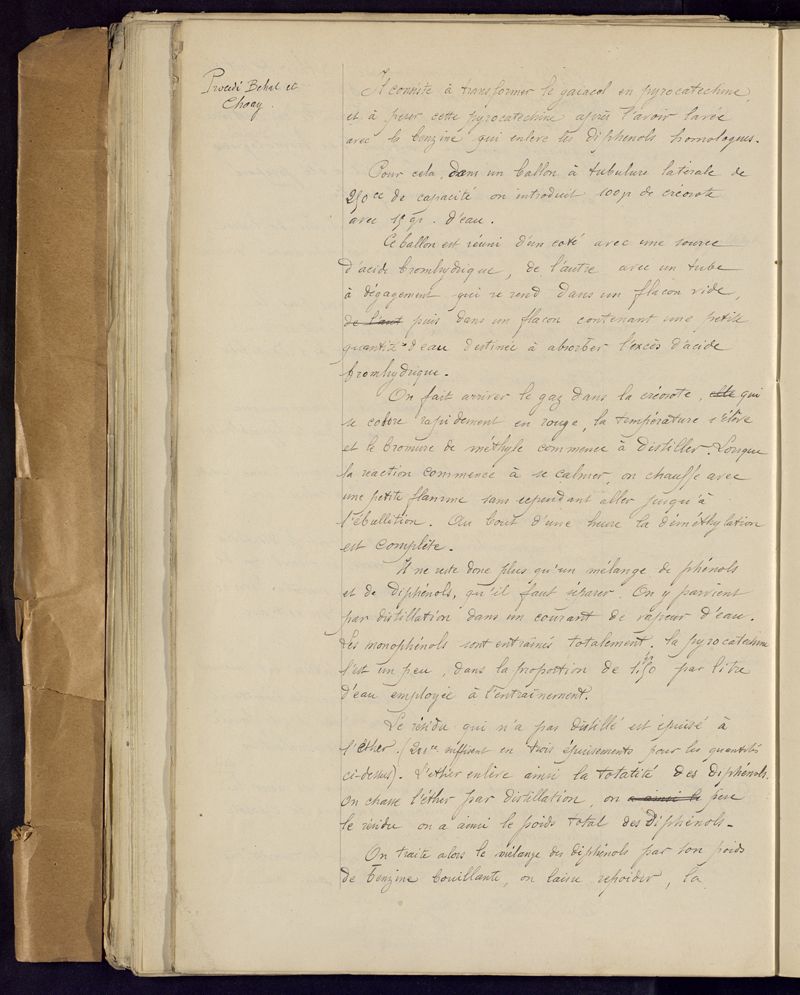 Procédé Behal et
Choay.
Il consiste à transformer le gaiacol en pyrocatechine,
et à peser cette pyrocatechine après l'avoir lavée
avec la benzine qui enlève les diphenols homologues.
Pour cela, dans un ballon à tubulure latérale de
250 cc de capacité on introduit 100 gr de créosote
avec 15 gr. d'eau.
Ce ballon est réuni d'un coté avec une source
d'acide bromhydrique, de l'autre avec un tube
à dégagement qui se rend dans un flacon vide,
de l'aut puis dans un flacon contenant une petite
quantité d'eau destinée à absorber l'excès d'acide
bromhydrique.
On fait arriver le gaz dans la créosote, elle qui
se colore rapidement en rouge, la température s'élève
et le bromure de méthyle commence à distiller. Lorsque
la réaction commence à se calmer, on chauffe avec
une petite flamme sans cependant aller jusqu'à
l'ébullition. Au bout d'une heure la déméthylation
est complète.
Il ne reste donc plus qu'un mélange de phénols
et de diphénols, qu'il faut séparer. On y parvient
par distillation dans un courant de vapeur d'eau.
Les monophénols sont entraînés totalement, la pyrocatechine
l'est un peu, dans la proportion de 1gr,50 par litre
d'eau employée à l'entraînement.
Le résidu qui n'a pas distillé est épuisé à
l'éther. ( suffisent en trois épuisements pour les quantités
ci-dessus). L'éther enlève ainsi la totalité des diphénols.
On chasse l'éther par distillation, on a ainsi le pèse
le résidu on a ainsi le poids total des Diphénols.
On traite alors le mélange des diphénols par son poids
de benzine bouillante, on laisse refroidir, la